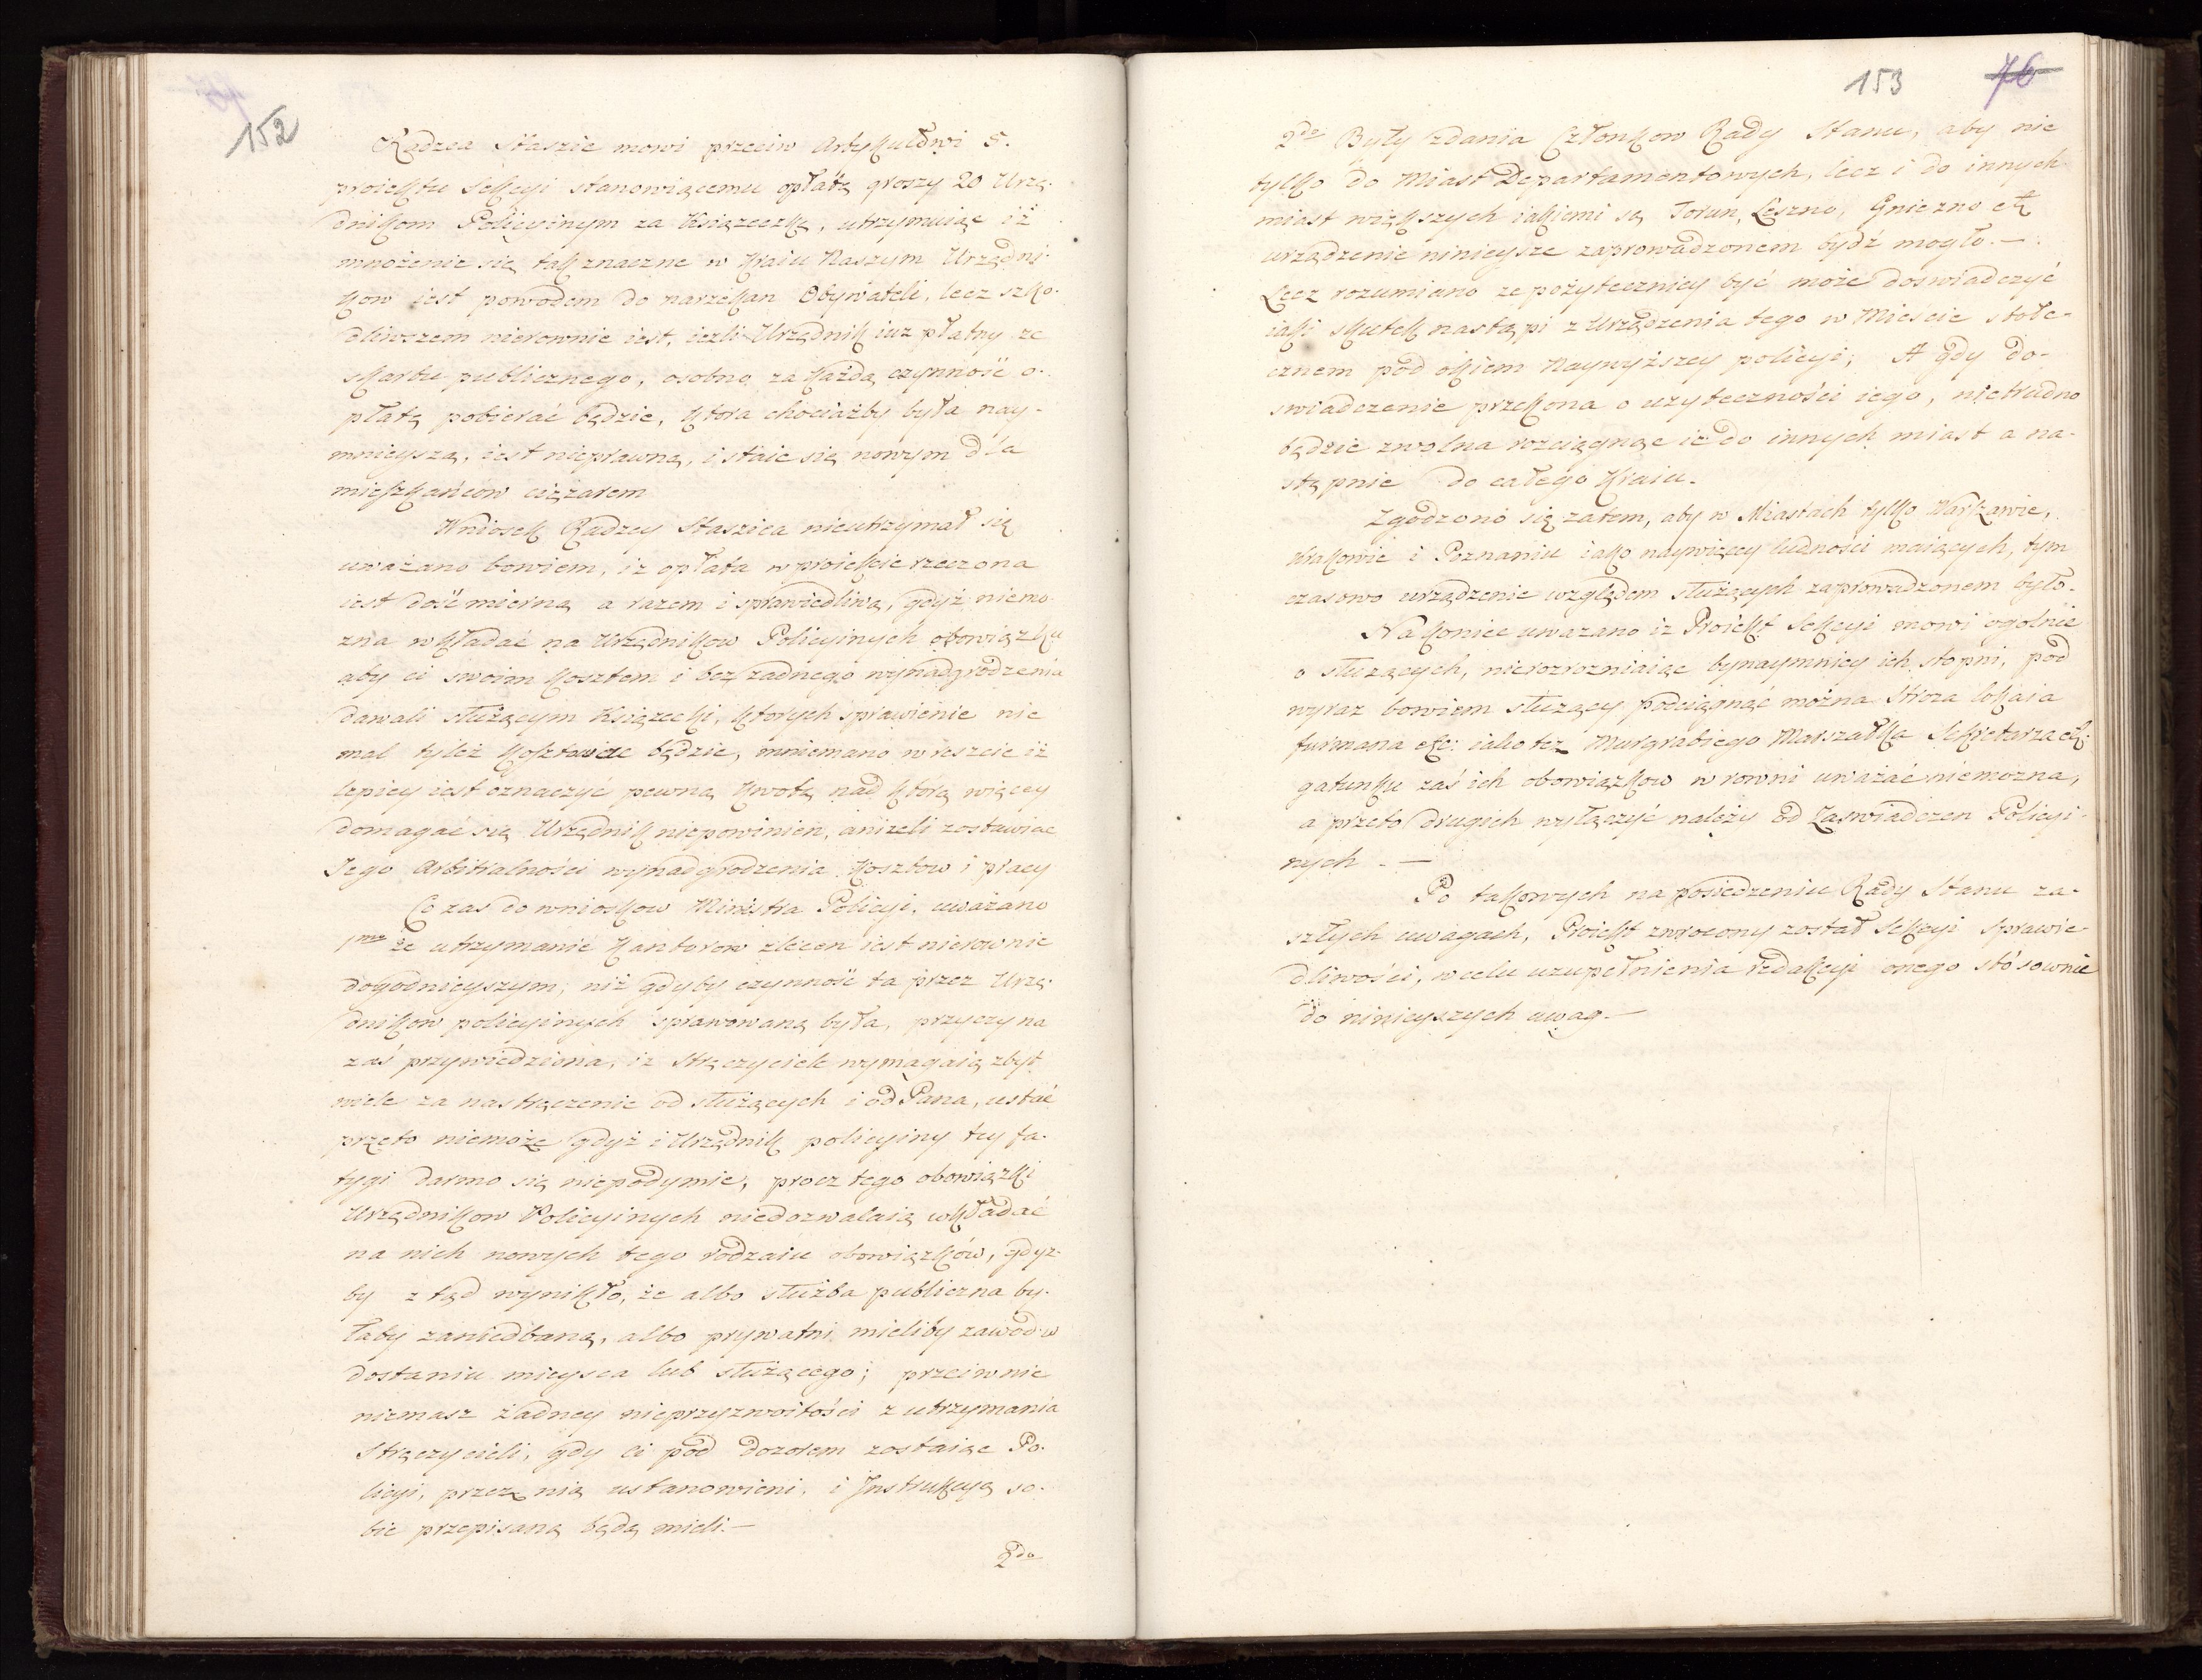 152
Radzca Staszic mowi przeciw Artykułowi 5.
proiektu Sekcyi stanowiącemu opłatę groszy 20 Urzę-
dnikom Policyinym za Książeczkę, utrzymuiąc iż
mnożenie się tak znaczne w Kraiu Naszym Urzędni-
kow iest powodem do narzekan Obywateli, lecz szko-
dliwszem nierownie iest, iezli Urzędnik iuz płatny ze
skarbu publicznego, osobno za każdą czynność o-
płatę pobierać będzie, ktora chociażby była nay-
mnieyszą, iest nieprawną, i staie się nowym dla
mieszkańcow ciężarem
Wniosek Radzcy Staszica nieutrzymał się
uważano bowiem, iz opłata w proiekcie rzeczona
iest dość mierną a razem i sprawiedliwą, gdyż niemo-
zna wkładać na Urzędnikow Policyinych obowiązku
aby ci swoim kosztem i bez zadnego wynadgrodzenia
dawali służącym Książecki, ktorych sprawienie nie
mal tyleż kosztować będzie, mniemano wreszcie iż
lepiey iest oznaczyć pewną kwotę nad którą więcey
domagać się Urzędnik niepowinien, aniżeli zostawiać
Jego Arbitralności wynadgrodzenia kosztow i pracy
Co zas do wnioskow Ministra Policyi, uważano
1mo że utrzymanie Kantorow zlecen iest nierownie
dogodnieyszym, niż gdyby czynność ta przez Urzę-
dnikow policyinych sprawowaną była, przyczyna
zaś przywiedziona, iz stręczyciele wymagaią zbyt
wiele za nastręczenie od służących i od Pana, ustać
przeto niemoże gdyż i Urzędnik policyiny tey fa-
tygi darmo się niepodymie, procz tego obowiązki
Urzędnikow Policyinych niedozwalaią wkładać
na nich nowych tego rodzaiu obowiązków, gdyż-
by z tąd wynikło, że albo służba publiczna by-
łaby zaniedbaną, albo prywatni mieliby zawod w
dostaniu mieysca lub służącego; przeciwnie
niemasz żadney nieprzyzwoitości z utrzymania
Stręczycieli, gdy ci pod dozorem zostaiąc Po-
licyi, przez nią ustanowieni, i Instrukcyą so-
bie przepisaną będą mieli.—
2do
153 76
2do Były zdania Członkow Rady Stanu, aby nie
tylko do Miast Departamentowych, lecz i do innych
miast większych iakiemi są Torun, Leszno, Gniezno etc
urządzenie ninieysze zaprowadzonem bydź mogło.—
Lecz rozumiano ze pożyteczniey być może doswiadczyć
iaki skutek nastąpi z Urządzenia tego w Mieście stołe-
cznem pod okiem Naywyższey policyi; A gdy do-
swiadczenie przekona o uzyteczności iego, nietrudno
będzie zwolna rozciągnąć ie do innych miast a na-
stępnie do całego Kraiu.
Zgodzono się zatem, aby w Miastach tylko Warszawie,
Krakowie i Poznaniu iako naywięcey ludności maiących, tym
czasowo urządzenie względem służących zaprowadzonem było.
Nakoniec uwazano iz Proiekt Sekcyi mowi ogolnie
o służących, nierozrozniaiąc bynaymniey ich stopni, pod
wyraz bowiem służący podciągnąć można Stroza lokaia
furmana etc: iako tez Murgrabiego Marszałka Sekretarza etc:
gatunku zaś ich obowiązkow w rowni uważać niemozna,
a przeto drugich wyłączyć należy od Zaswiadczen Policyi-
nych.—
Po takowych na posiedzeniu Rady Stanu za-
szłych uwagach, Proiekt zwrocony został Sekcyi Sprawie-
dliwości, w celu uzupełnienia redakcyi onego stósownie
do ninieyszych uwag.—